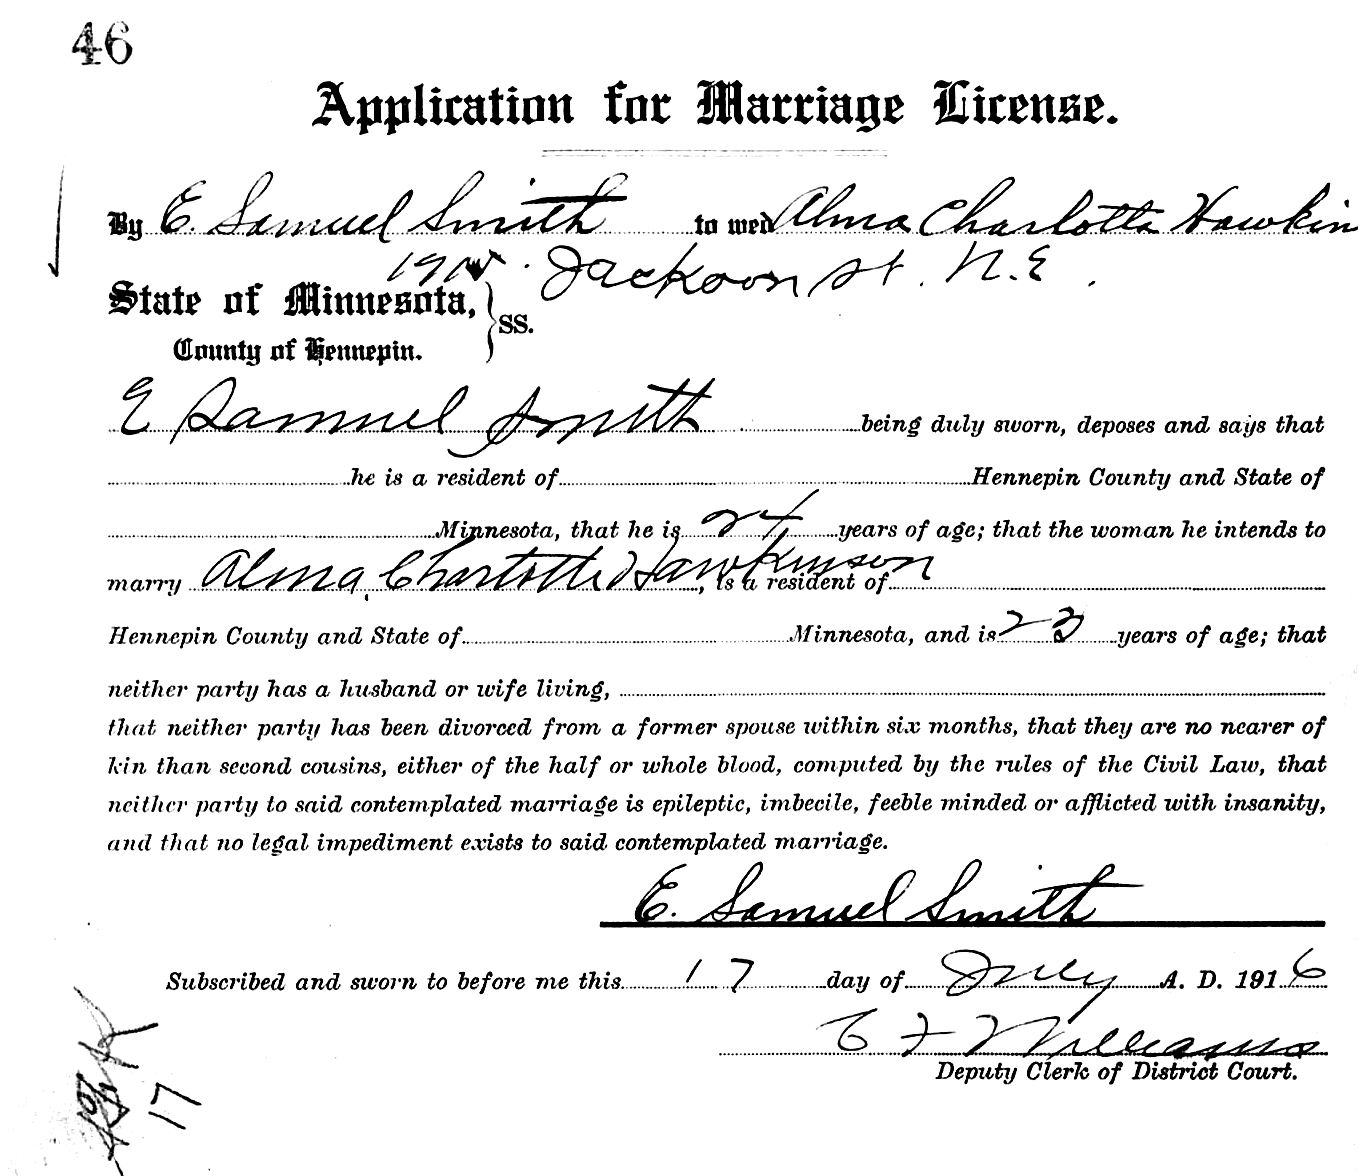 46
Application for Marriage License.
By E. Samuel Smith to wed Alma Charlotta Hawkin
Jackson St. N.E.
State of Minnesota, } SS.
County of Hennepin.
E Samuel Smith being duly sworn, deposes and says that
he is a resident of Hennepin County and State of
Minnesota, that he is 24 years of age; that the woman he intends to
marry Alma Charlotte Hawkinson, is a resident of
Hennepin County and State of Minnesota, and is 23 years of age; that
neither party has a husband or wife living,
that neither party has been divorced from a former spouse within six months, that they are no nearer of
kin than second cousins, either of the half or whole blood, computed by the rules of the Civil Law, that
neither party to said contemplated marriage is epileptic, imbecile, feeble minded or afflicted with insanity,
and that no legal impediment exists to said contemplated marriage.
E. Samuel Smith
Subscribed and sworn to before me this 17 day of July A. D. 1916
Williams
Deputy Clerk of District Court.
17